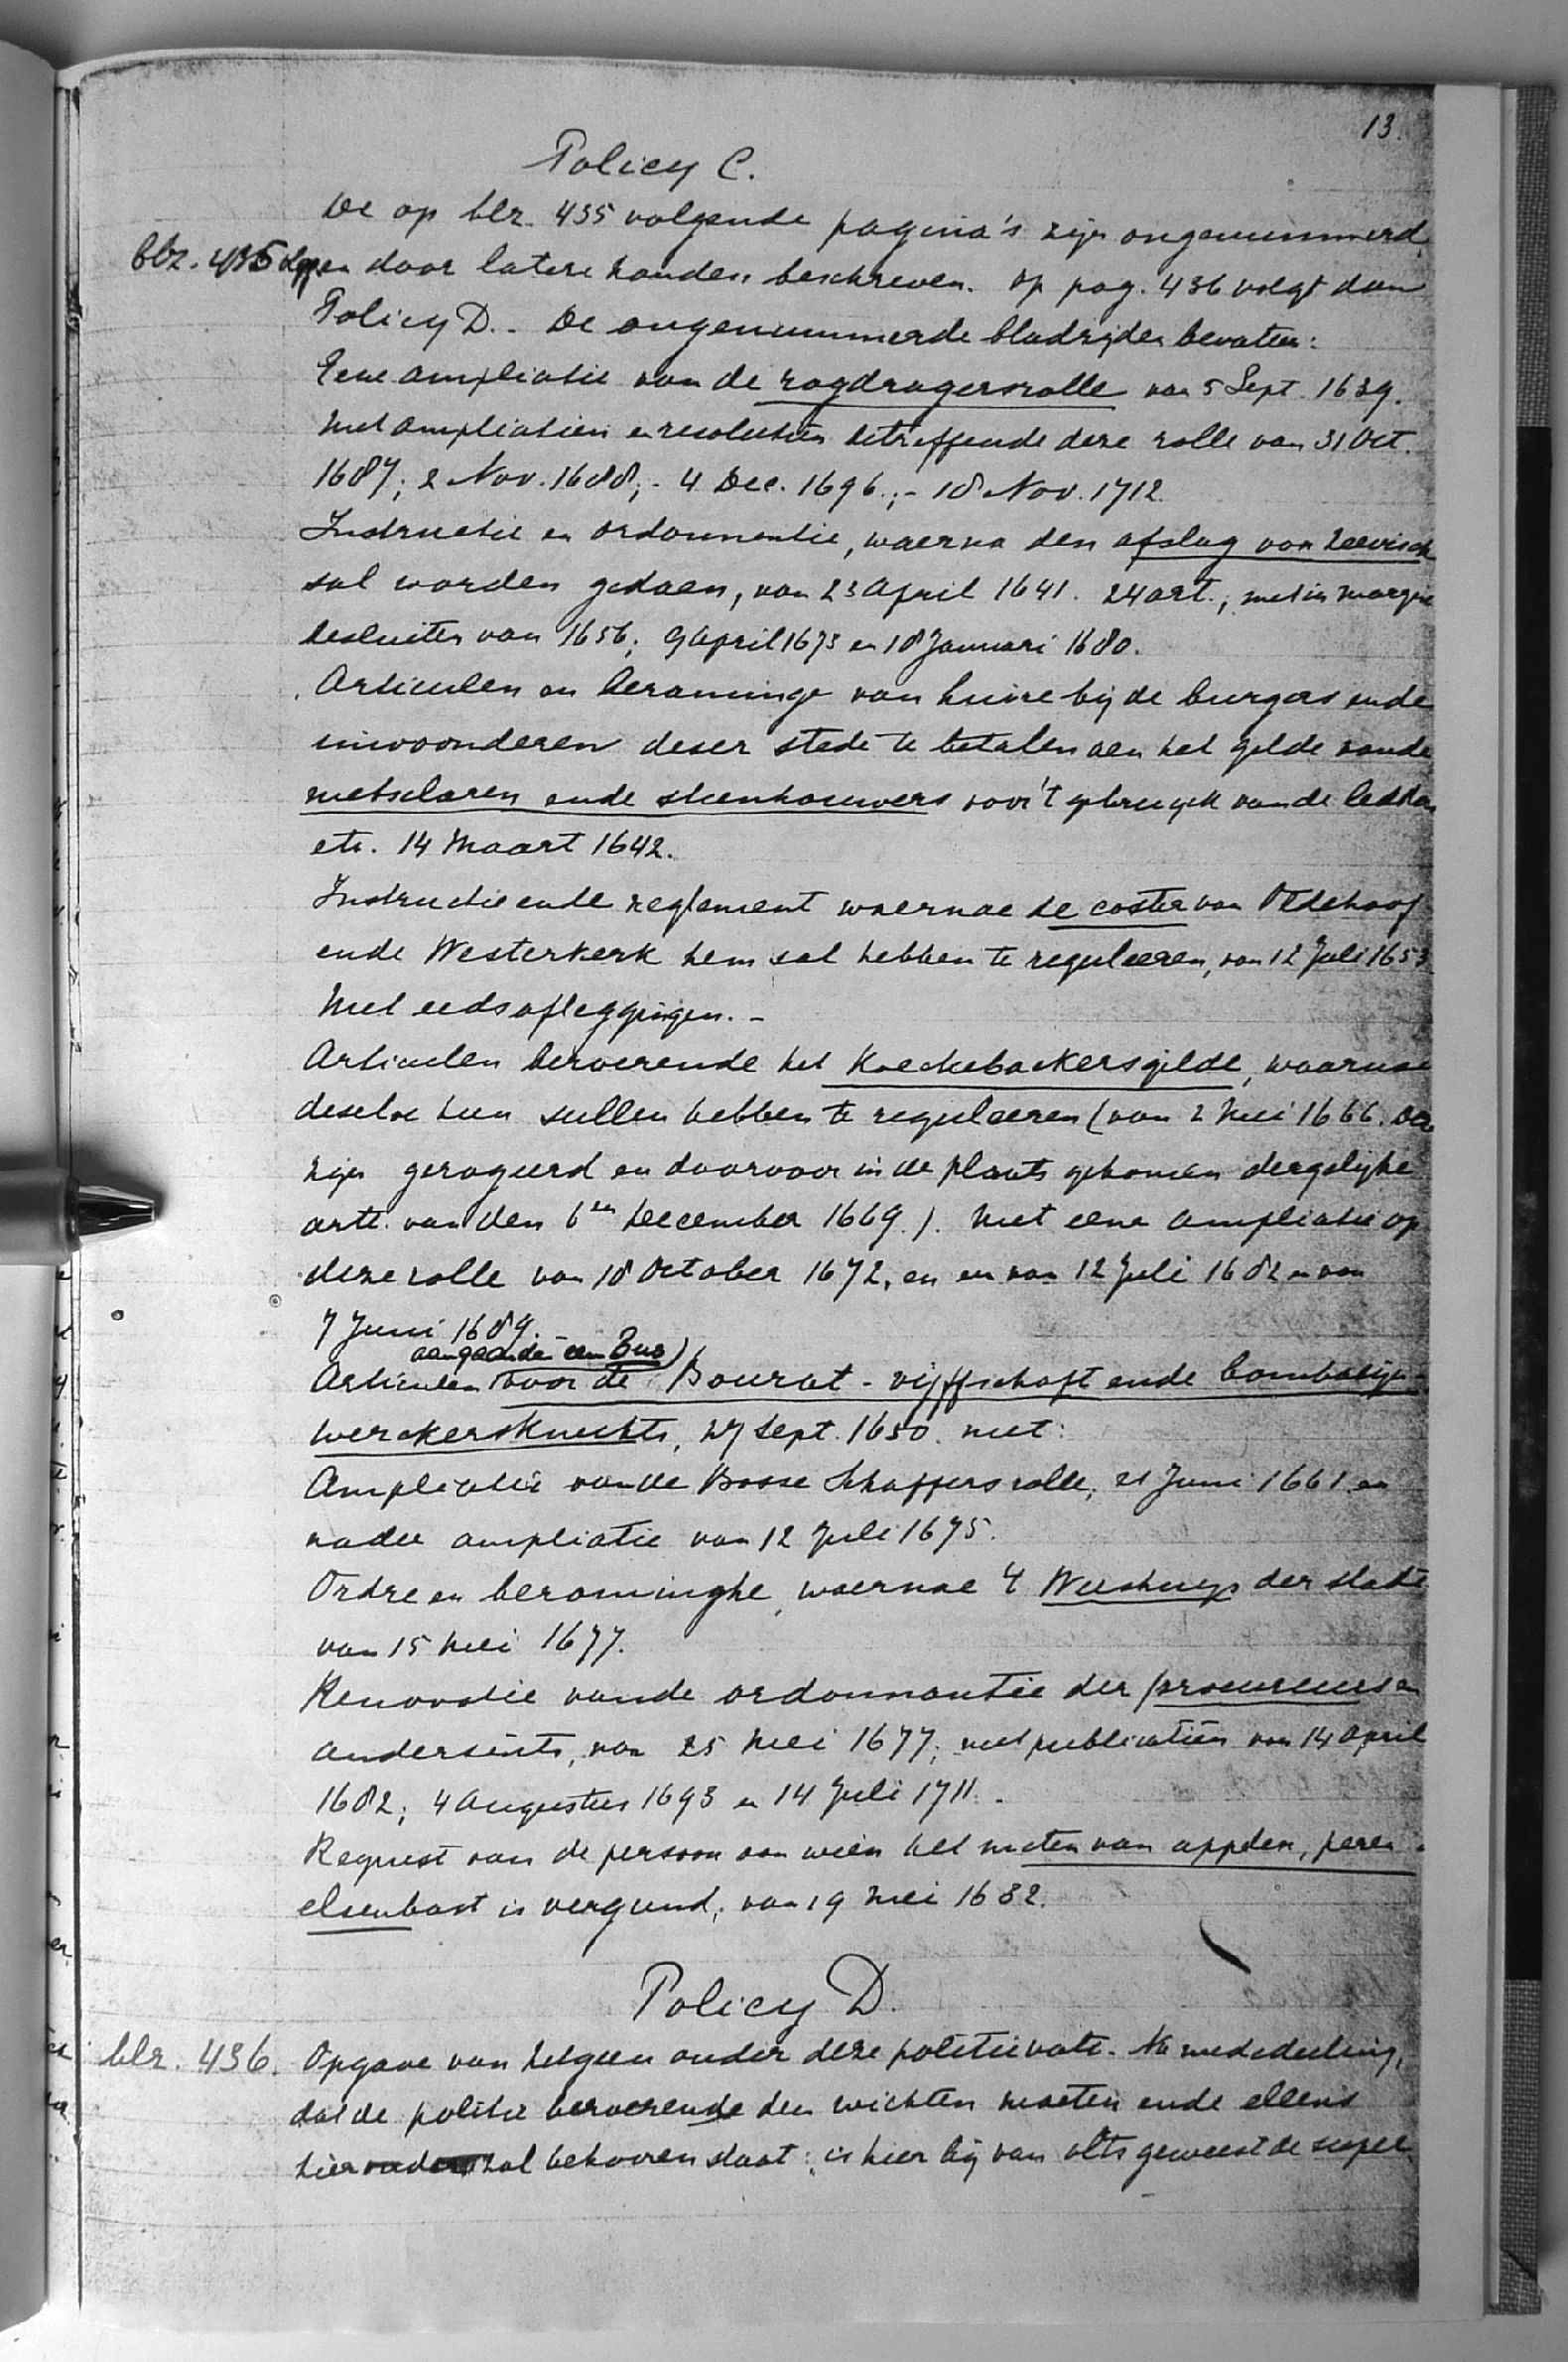 13.
Policy C.
De op blz. 435 volgende pagina's zijn ongenummerd,
blz. 435 en door latere handen beschreven. Op pag. 436 volgt dan
Policy D. - De ongenummerde bladzijden bevaten:
Eene ampliatie van de zagdragersrolle van 5 Sept. 1639.
Met ampliatien en resolutien betreffende deze rolle van 31 Oct.
1687; 2 Nov. 1688; - 4 Dec. 1696; - 18 Nov. 1712.
Instructie en ordonnantie, waerna den afslag van Zeevisch
sal worden gedaen, van 23 April 1641. 24 art., met in margine
besluiten van 1656; 9 April 1673 en 18 Januari 1680.
Articulen en beraminge van huire bij de burgers ende
inwoonderen deser stede te betalen aen het gilde vande
metselaren ende steenhouwers voor 't gebruyck vande ledders
etc. 14 Maart 1642.
Instructie ende reglement waernae de coster van Oldehoof
ende Westerkerk hem sal hebben te reguleeren, van 12 Juli 1653
Met eedsafleggingen. -
Articulen beroerende het Koeckebackersgilde, waarnae
deselve hun sullen hebben te reguleeren (van 2 Mei 1666. Deze
zijn geroyeerd en daarvoor in de plaats gekomen dergelijke
artt. van den 6en December 1669.). Met eene ampliatie op
deze rolle van 18 October 1672, en en van 12 Juli 1682 en van
7 Juni 1689.
aengaende een Bus)
Articulen voor de Bourat - vijfschaft ende bombasijn-
werckersknechts, 27 Sept. 1650. met:
Ampliatie vande Bosse Schaffers rolle, 21 Juni 1661 en
nader ampliatie van 12 Juli 1675.
Ordre en beraminghe, waernae 't Weeshuys der stadt
van 15 Mei 1677.
Renovatie vande ordonnantie der procureurs en
andersints, van 25 Mei 1677; met publicatiën van 14 April
1682; 4 Augustus 1693 en 14 Juli 1711.
Request van de persoon aan wien het meten van appelen, peren
elsenbast is vergund, van 19 Mei 1682.
Policy D.
blz. 436. Opgave van hetgeen onder deze politie valt. Na mededeeling,
dat de politie beroerende den wichten maeten ende ellens
hier onder sal behooren staat: is hier bij van olts geweest de